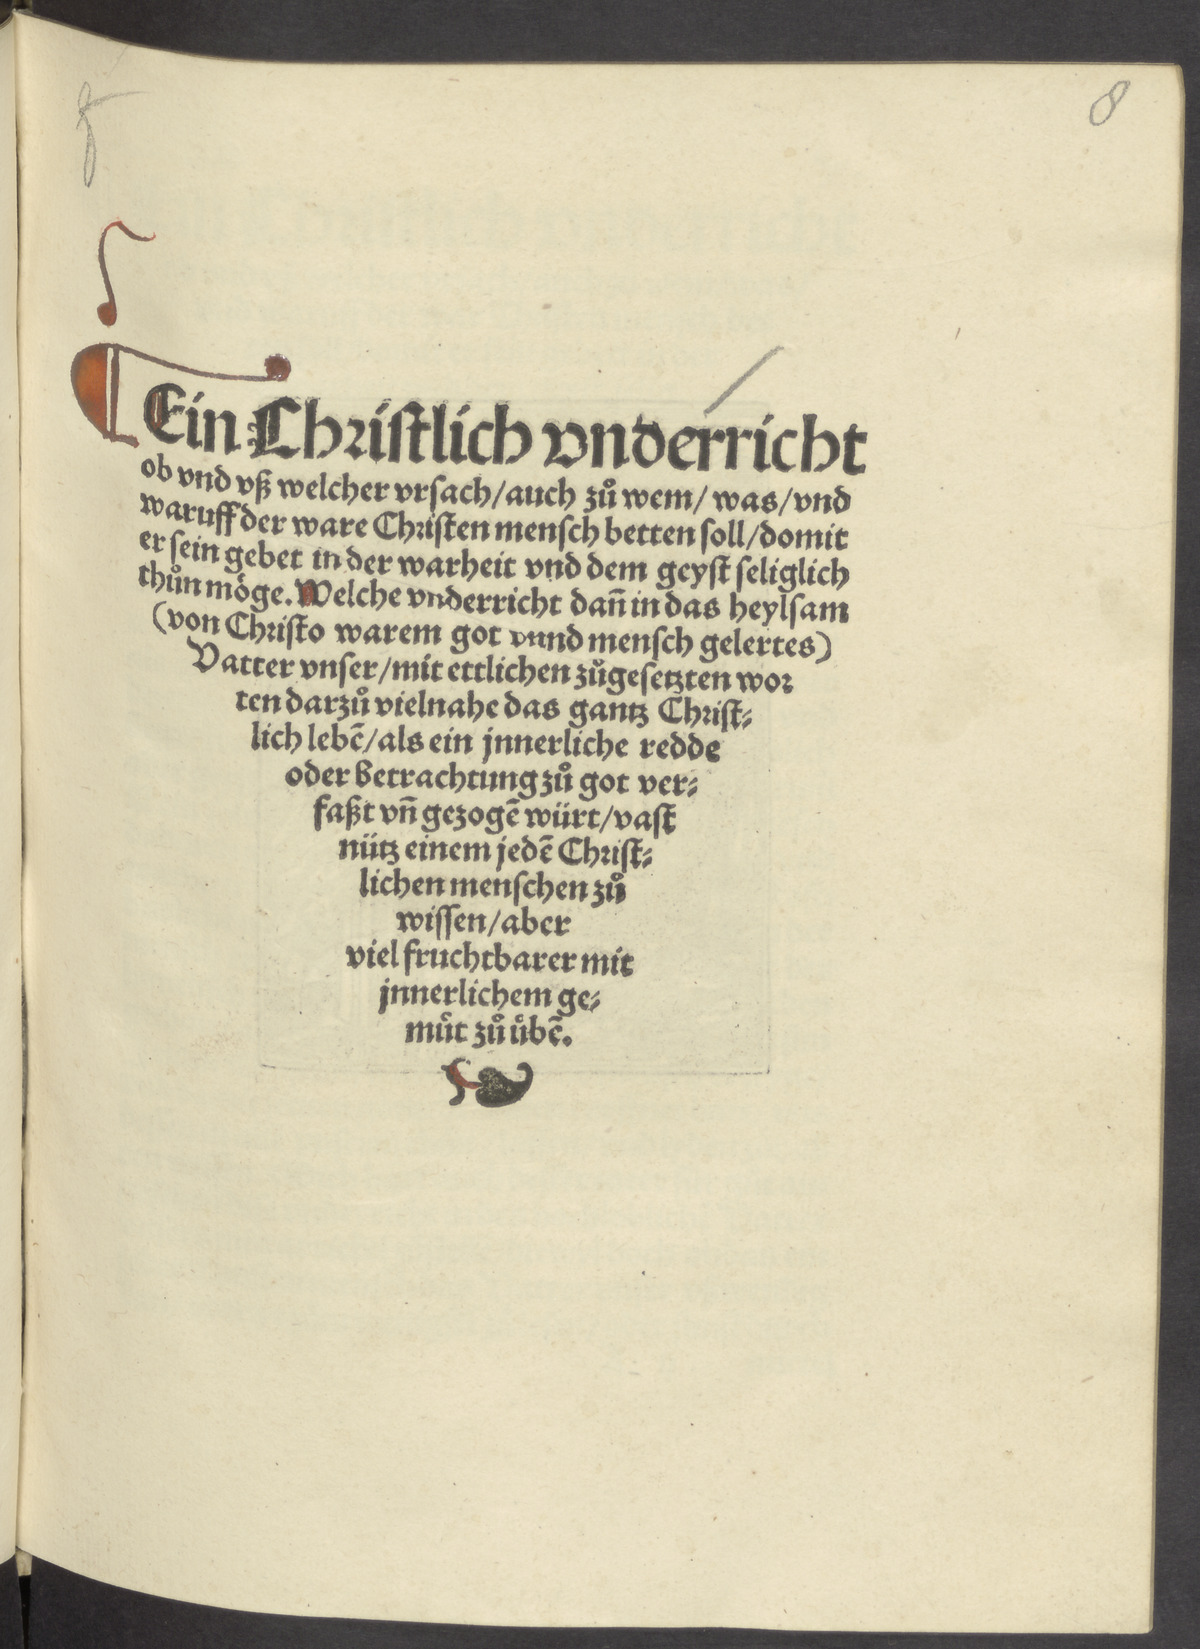 8
¶ Ein Christlich vnderricht
ob vnd vß welcher vrsach/auch zů wem/ was/vnd
waruff der ware Christen mensch betten soll/domit
er sein gebet in der warheit vnd dem geyst seliglich
thůn möge. Welche vnderricht dañ in das heylsam
(von Christo warem got vnnd mensch gelertes)
Vatter vnser/mit ettlichen zůgesetzten wor
ten darzů vielnahe das gantz Christ⸗
lich lebē/als ein jnnerliche redde
oder betrachtung zů got ver⸗
faßt vñ gezogē würt/vast
nütz einem jedē Christ⸗
lichen menschen zů
wissen/aber
viel fruchtbarer mit
jnnerlichem ge⸗
můt zů ůbē.